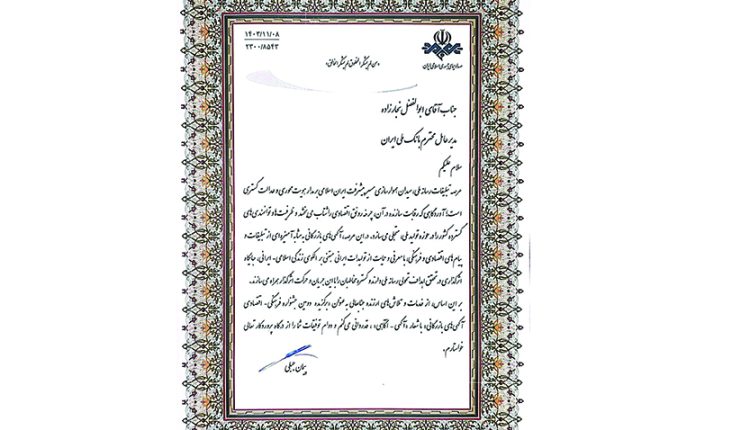 ۱۴۰۳/۱۱/۰۸
۲۳۰۰/۸۵۴۳
صدا و سیمای جمهوری اسلامی ایران
«من لم یشکر المخلوق لم یشکر الخالق»
جناب آقای ابوالفضل نجارزاده
مدیرعامل محترم بانک ملی ایران
سلام علیکم
عرصه تبلیغات رسانه ملی، میدان هموارسازی مسیر پیشرفت ایران اسلامی بر مدار هویت محوری و عدالت گستری
است؛ آوردگاهی که رقابت سازنده در آن، چرخه رونق اقتصادی را شتاب می بخشد و ظرفیت ها و توانمندی های
گسترده کشور را در حوزه تولید ملی، متجلی می سازد. در این عرصه، آگهی های بازرگانی به مثابه آمیزه ای از تبلیغات و
پیام های اقتصادی و فرهنگی، با معرفی و حمایت از تولیدات ایرانی مبتنی بر الگوی زندگی اسلامی - ایرانی، جایگاه
اثرگذاری در تحقق اهداف تحولی رسانه ملی دارند و گستره مخاطبان را با این جریان و حرکت اثرگذار همراه می سازند.
بر این اساس، از خدمات و تلاش های ارزنده جنابعالی به عنوان «برگزیده دومین جشنواره فرهنگی - اقتصادی
آگهی های بازرگانی» با شعار «آگهی - آگاهی»، قدردانی می کنم و دوام توفیقات شما را از درگاه پروردگار متعال
خواستارم.
پیمان جبلی